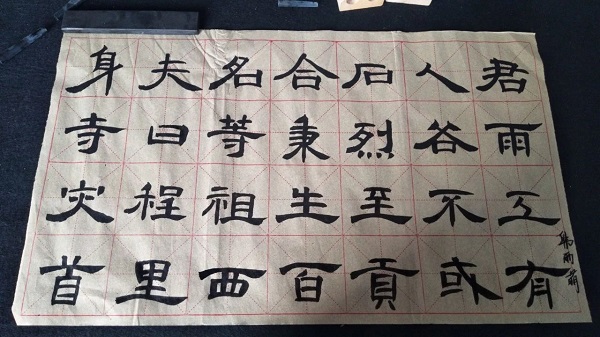 君雨工有
人谷不或
石烈至貢
合秉生百
名等祖西
夫曰程里
身寺灾首